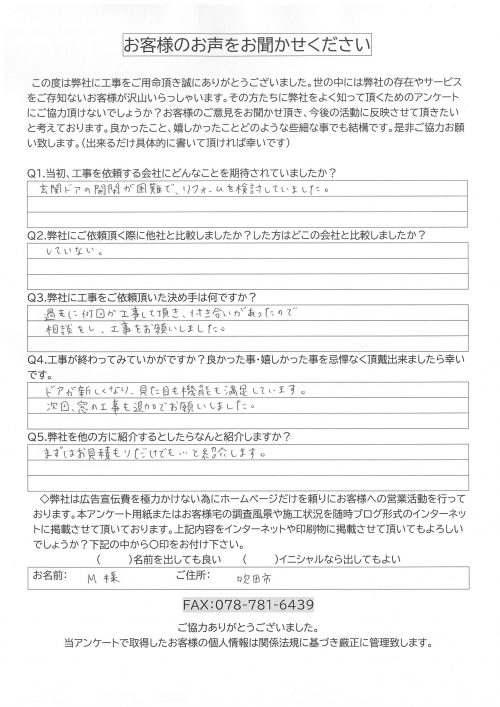 お客様のお声をお聞かせください
この度は弊社に工事をご用命頂き誠にありがとうございました。世の中には弊社の存在やサービス
をご存知ないお客様が沢山いらっしゃいます。その方たちに弊社をよく知って頂くためのアンケート
にご協力頂けないでしょうか？お客様のご意見をお聞かせ頂き、今後の活動に反映させて頂きたい
と考えております。良かったこと、嬉しかったことどのような些細な事でも結構です。是非ご協力お願
い致します。（出来るだけ具体的に書いて頂ければ幸いです）
Q1.当初、工事を依頼する会社にどんなことを期待されていましたか？
玄関ドアの開閉が困難で、リフォームを検討していました。
Q2.弊社にご依頼頂く際に他社と比較しましたか？した方はどこの会社と比較しましたか？
していない。
Q3.弊社に工事をご依頼頂いた決め手は何ですか？
過去に何回か工事して頂き、付き合いがあったので
相談をし、工事をお願いしました。
Q4.工事が終わってみていかがですか？良かった事・嬉しかった事を忌憚なく頂戴出来ましたら幸い
です。
ドアが新しくなり、見た目も機能も満足しています。
次回、窓の工事も追加でお願いしました。
Q5.弊社を他の方に紹介するとしたらなんと紹介しますか？
まずはお見積もりだけでも、と紹介します。
◇弊社は広告宣伝費を極力かけない為にホームページだけを頼りにお客様への営業活動を行って
おります。本アンケート用紙またはお客様宅の調査風景や施工状況を随時ブログ形式のインターネッ
トに掲載させて頂いております。上記内容をインターネットや印刷物に掲載させて頂いてもよろしい
でしょうか？下記の中から〇印をお付け下さい。
（　　）名前を出しても良い　（　　）イニシャルなら出してもよい
お名前：　M 様　ご住所：　吹田市
FAX:078-781-6439
ご協力ありがとうございました。
当アンケートで取得したお客様の個人情報は関係法規に基づき厳正に管理致します。